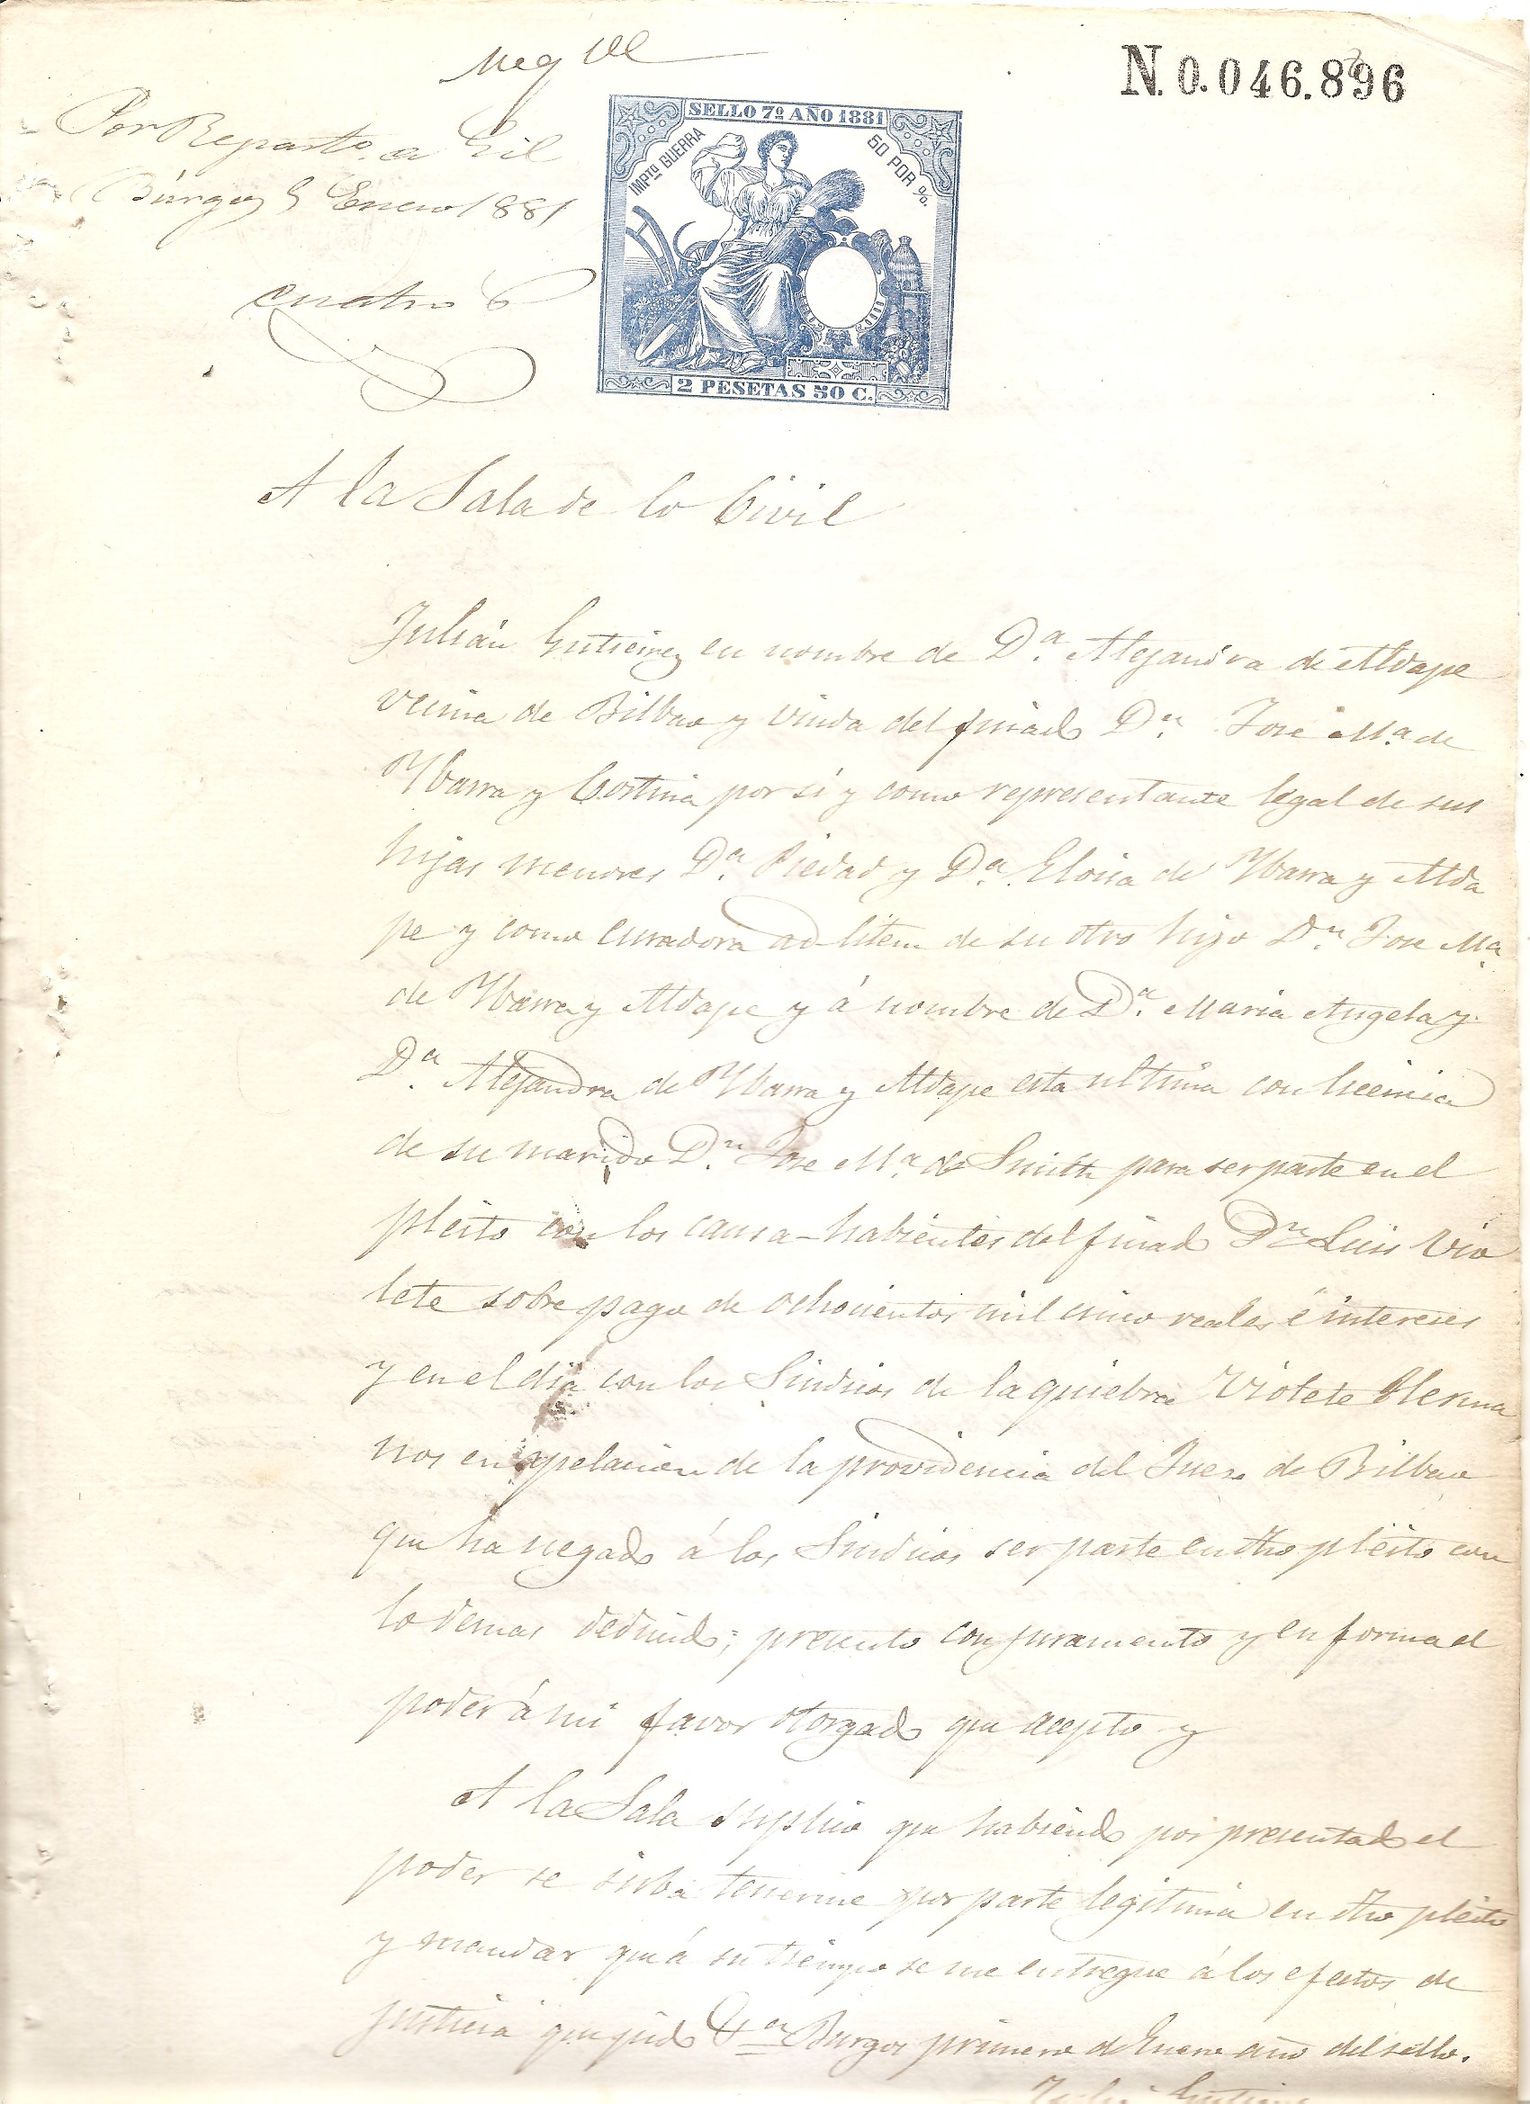 N. 0.046.896
Por Reparto. a Gil
Búrgos 5 Enero 1881
SELLO 7º AÑO 1881
IMPTO GUERRA
50 POR %.
2 PESETAS 50 C.
A la Sala de lo Civil
Julián Gutierrez en nombre de D.ª Alejandra de Aldape
vecina de Bilbao y viuda del finado D.n José M.ª de
Ybarra y Cortina por sí y como representante legal de sus
hijas menores D.ª Piedad y D.ª Eloisa de Ybarra y Alda
pe y como curadora ad-litem de su otro hijo D.n Jose M.ª
de Ybarra y Aldape y á nombre de D.ª Maria Angela y
D.ª Alejandra de Ybarra y Aldape esta ultima con licencia
de su marido D.n Jose M.ª de Smith para ser parte en el
pleito con los causa-habientes del finado D.n Luis Vio
lete sobre pago de ochocientos mil cinco reales é intereses
y en el dia con los Sindicos de la quiebra Violete Herma
nos en apelacion de la providencia del Juez de Bilbao
que ha negado á los Sindicos ser parte en dho pleito con
lo demas deducido; presento con juramento y en forma el
poder á mi favor otorgado que acepto y
A la Sala suplico que habiendo por presentado el
poder se sirva tenerme por parte legitima en dho pleito
y mandar que á su tiempo se me entregue á los efectos de
justicia que pido &.ª Burgos primero de Enero año del sello.